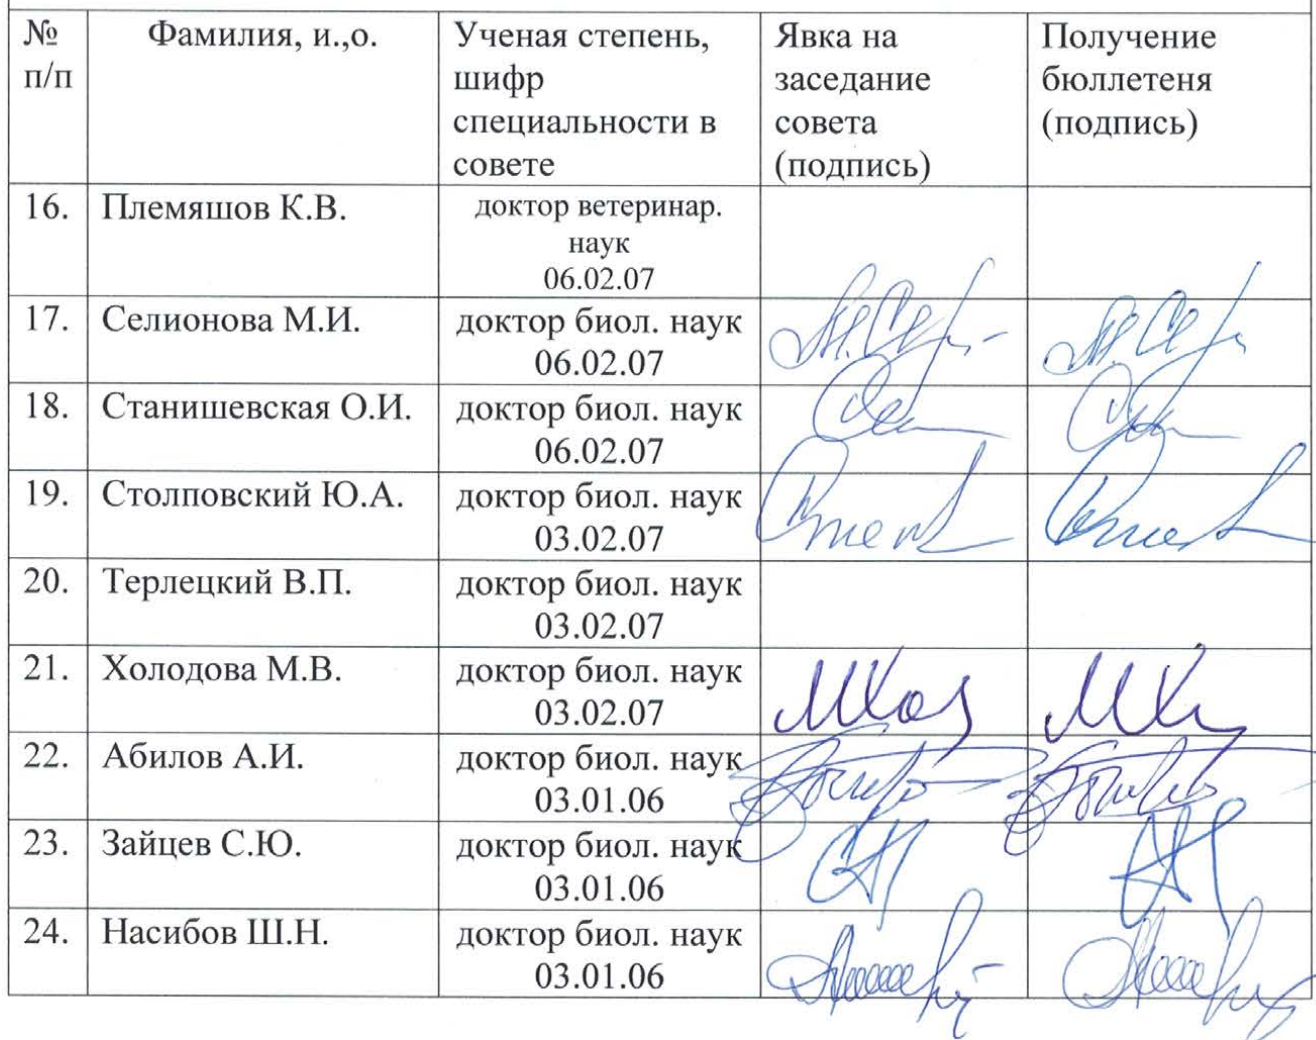 № п/п Фамилия, и.,о. Ученая степень, шифр специальности в совете Явка на заседание совета (подпись) Получение бюллетеня (подпись)
16. Племяшов К.В. доктор ветеринар. наук 06.02.07
17. Селионова М.И. доктор биол. наук 06.02.07
18. Станишевская О.И. доктор биол. наук 06.02.07
19. Столповский Ю.А. доктор биол. наук 03.02.07
20. Терлецкий В.П. доктор биол. наук 03.02.07
21. Холодова М.В. доктор биол. наук 03.02.07
22. Абилов А.И. доктор биол. наук 03.01.06
23. Зайцев С.Ю. доктор биол. наук 03.01.06
24. Насибов Ш.Н. доктор биол. наук 03.01.06